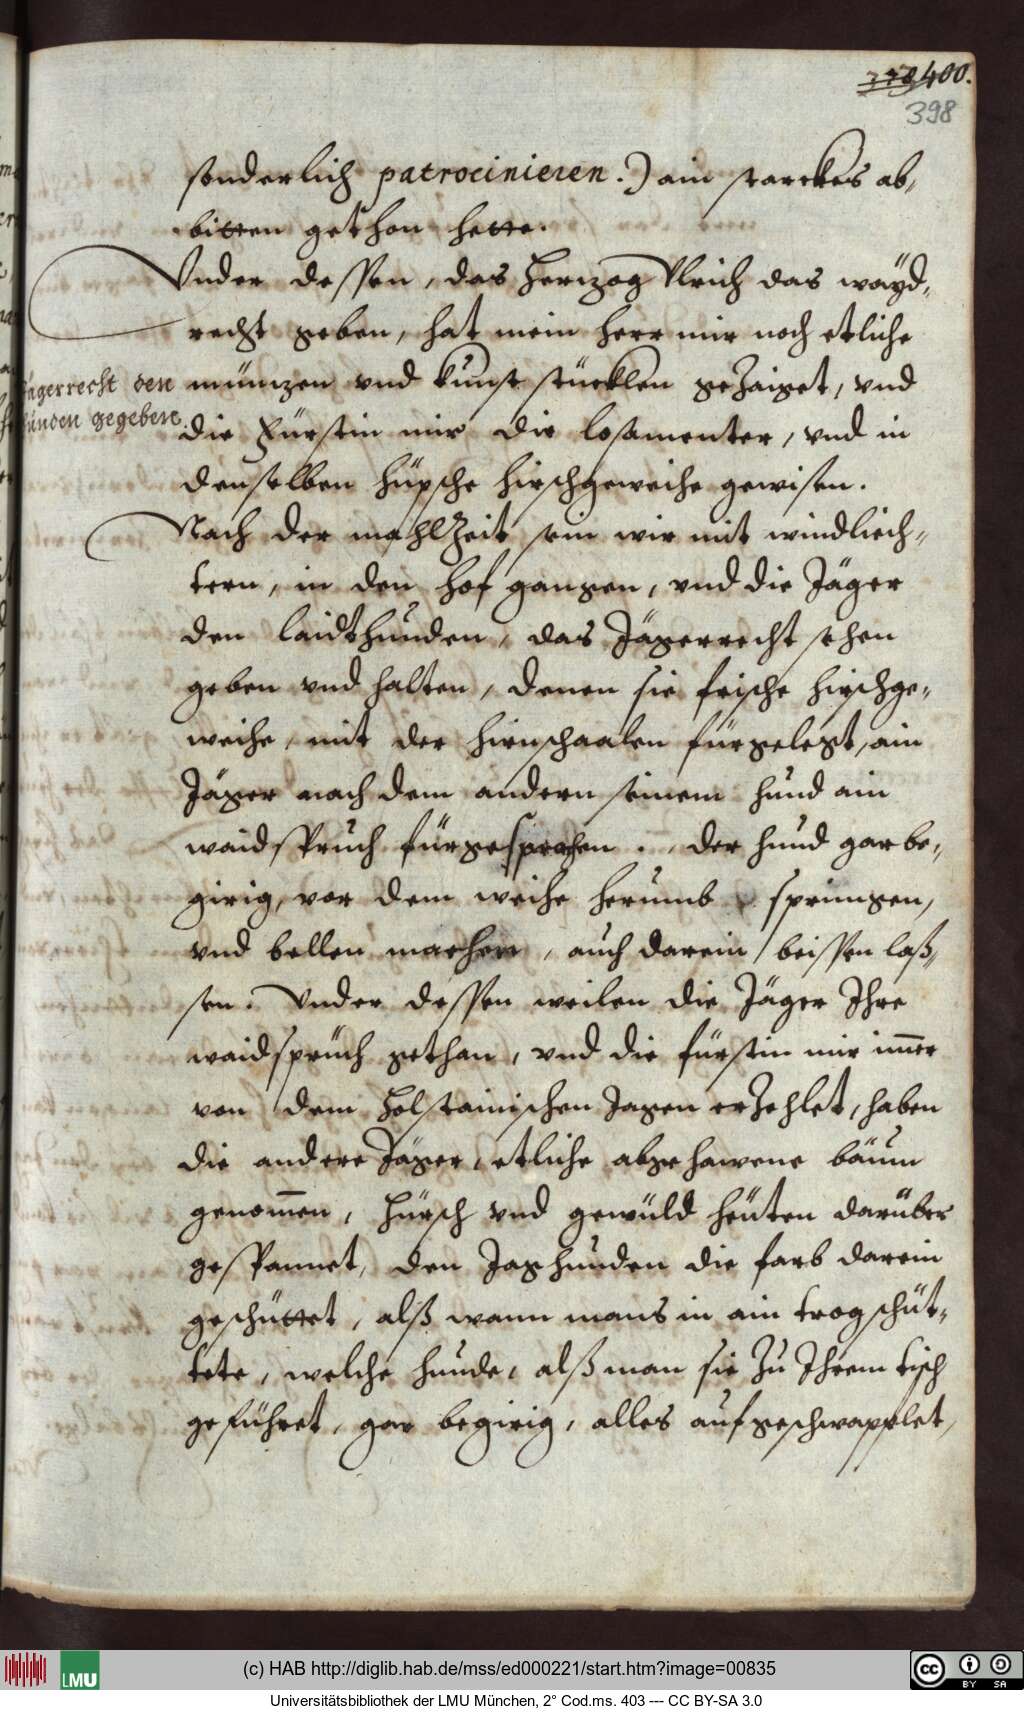 400.
398
sonderlich patrocinieren.) ain starckes ab,
bitten gethon hette.
Vnder dessen, das Hertzog Vlrich das wayd,
recht geben, hat mein herr mir noch etliche
müntzen vnd kunst stücklen gezaiget, vnd
Jägerrecht den
hunden gegeben.
die Fürstin mir die losamenter, vnd in
denselben hüpsche hirschgeweihe gewisen.
Nach der mahlzeit sein wir mit windliech-
tern, in den hof gangen, vnd die Jäger
den laidthunden, das Jägerrecht sehen
geben vnd halten, denen sie frische hirschge-
weihe, mit der hirnschaalen fürgelegt, ain
Jäger nach dem andern seinem hund ain
waidspruch fürgesprochen. der hund gar be,
girig, vor dem weihe herumb springen,
vnd bellen machen, auch darein beissen laß,
sen. Vnder dessen weilen die Jäger Ihre
waidsprüch gethan, vnd die fürstin mir imer
von dem Holstainischen Jagen erzehlet, haben
die andere Jäger, etliche abgehawene bäum
genomen, Hürsch vnd gewüld heuten darüber
gespannet, den Jaghunden die farb darein
geschüttet, alß wann mans in ain trog schüt-
tete, welche hunde, alß man sie zu Ihrem tisch
geführet, gar begirig, alles aufgeschwapplet,
(c) HAB http://diglib.hab.de/mss/ed000221/start.htm?image=00835
LMU
cc BY SA
Universitätsbibliothek der LMU München, 2° Cod.ms. 403 --- CC BY-SA 3.0